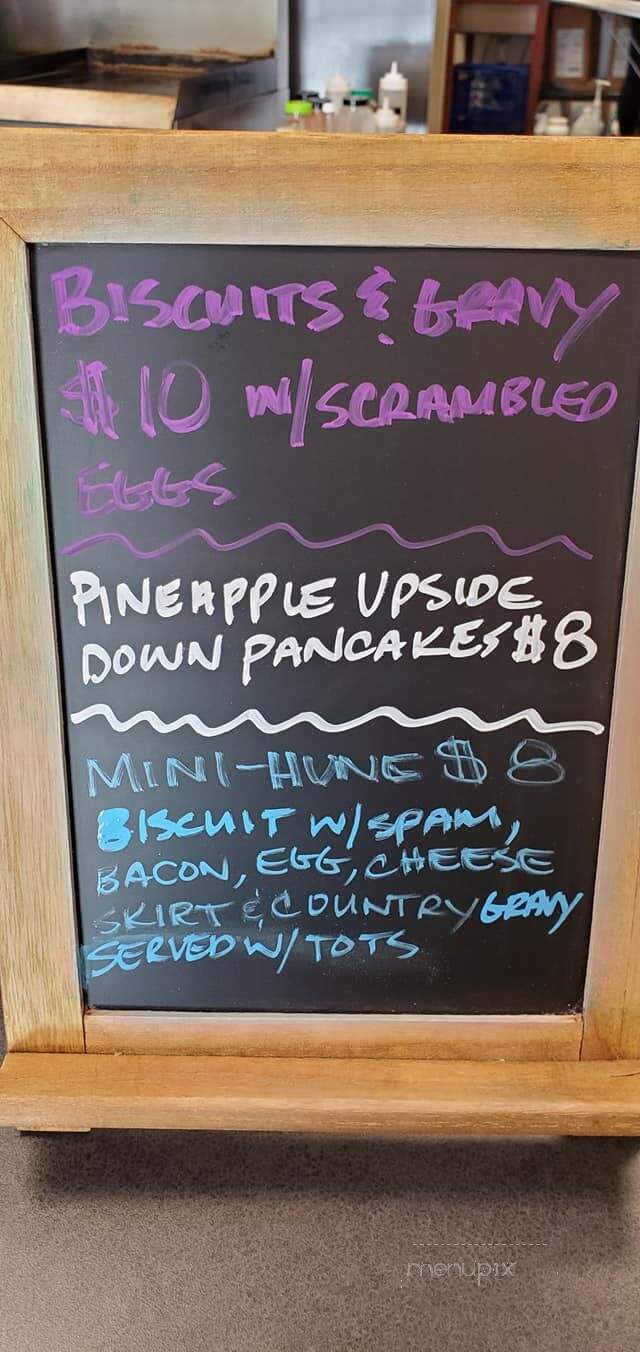 BISCUITS & GRAVY
$10 W/SCRAMBLED
EGGS
PINEAPPLE UPSIDE
DOWN PANCAKES $8
MINI-HUNE $8
BISCUIT W/SPAM,
BACON, EGG, CHEESE
SKIRT & COUNTRY GRAVY
SERVED W/ TOTS
menupix